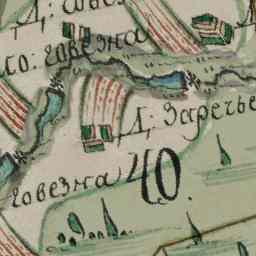 Д:
со: говезна
Д: Заречье
говезна 40.